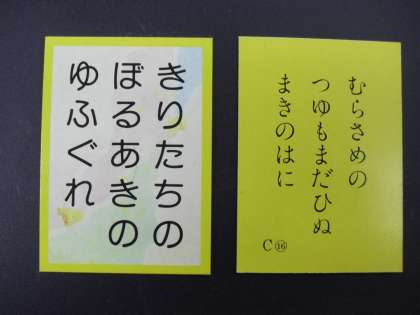 きりたちの
ぼるあきの
ゆふぐれ
むらさめの
つゆもまだひぬ
まきのはに
C⑯